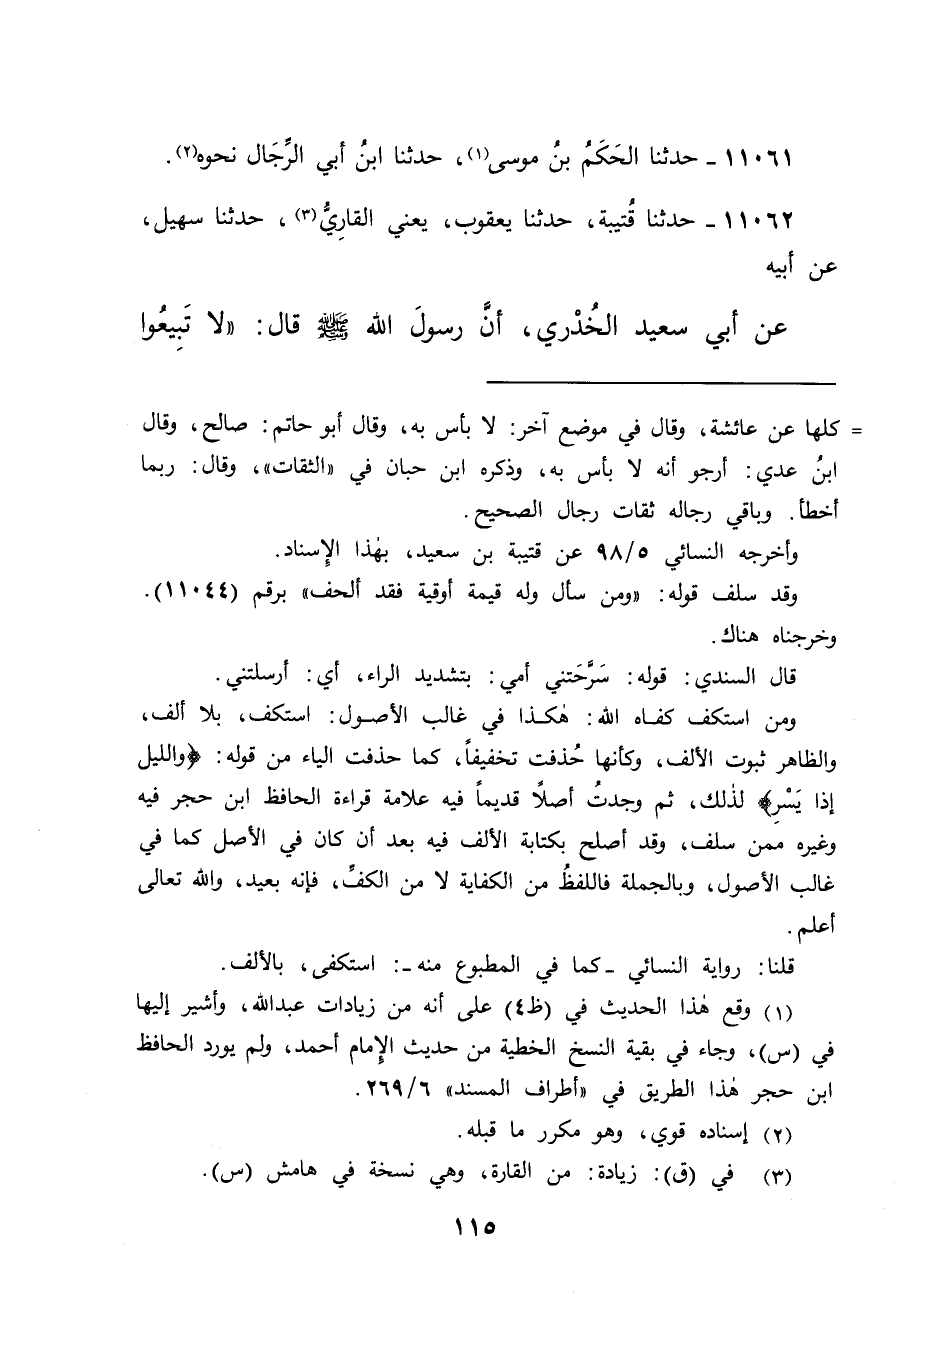 ١١٠٦١ ـ حدثنا الحَكَمُ بنُ موسى(١)، حدثنا ابنُ أبي الرِّجَال نحوه(٢).
١١٠٦٢ ـ حدثنا قُتيبة، حدثنا يعقوب، يعني القاريُّ(٣)، حدثنا سهيل،
عن أبيه
عن أبي سعيد الخُدْري، أنَّ رسولَ الله ﷺ قال: «لا تَبِيعُوا
= كلها عن عائشة، وقال في موضع آخر: لا بأس به، وقال أبو حاتم: صالح، وقال
ابنُ عدي: أرجو أنه لا بأس به، وذكره ابن حبان في «الثقات»، وقال: ربما
أخطأ. وباقي رجاله ثقات رجال الصحيح.
وأخرجه النسائي ٩٨/٥ عن قتيبة بن سعيد، بهٰذا الإسناد.
وقد سلف قوله: «ومن سأل وله قيمة أوقية فقد ألحف» برقم (١١٠٤٤).
وخرجناه هناك.
قال السندي: قوله: سَرَّحَتني أمي: بتشديد الراء، أي: أرسلتني.
ومن استكف كفاه الله: هٰكذا في غالب الأصول: استكف، بلا ألف،
والظاهر ثبوت الألف، وكأنها حُذفت تخفيفاً، كما حذفت الياء من قوله: ﴿والليل
إذا يَسْرِ﴾ لذٰلك، ثم وجدتُ أصلاً قديماً فيه علامة قراءة الحافظ ابن حجر فيه
وغيره ممن سلف، وقد أصلح بكتابة الألف فيه بعد أن كان في الأصل كما في
غالب الأصول، وبالجملة فاللفظُ من الكفاية لا من الكفِّ، فإنه بعيد، والله تعالى
أعلم.
قلنا: رواية النسائي ـكما في المطبوع منه ـ: استكفى، بالألف.
(١) وقع هٰذا الحديث في (ظ٤) على أنه من زيادات عبدالله، وأشير إليها
في (س)، وجاء في بقية النسخ الخطية من حديث الإمام أحمد، ولم يورد الحافظ
ابن حجر هٰذا الطريق في «أطراف المسند» ٢٦٩/٦.
(٢) إسناده قوي، وهو مكرر ما قبله.
(٣) في (ق): زيادة: من القارة، وهي نسخة في هامش (س).
١١٥